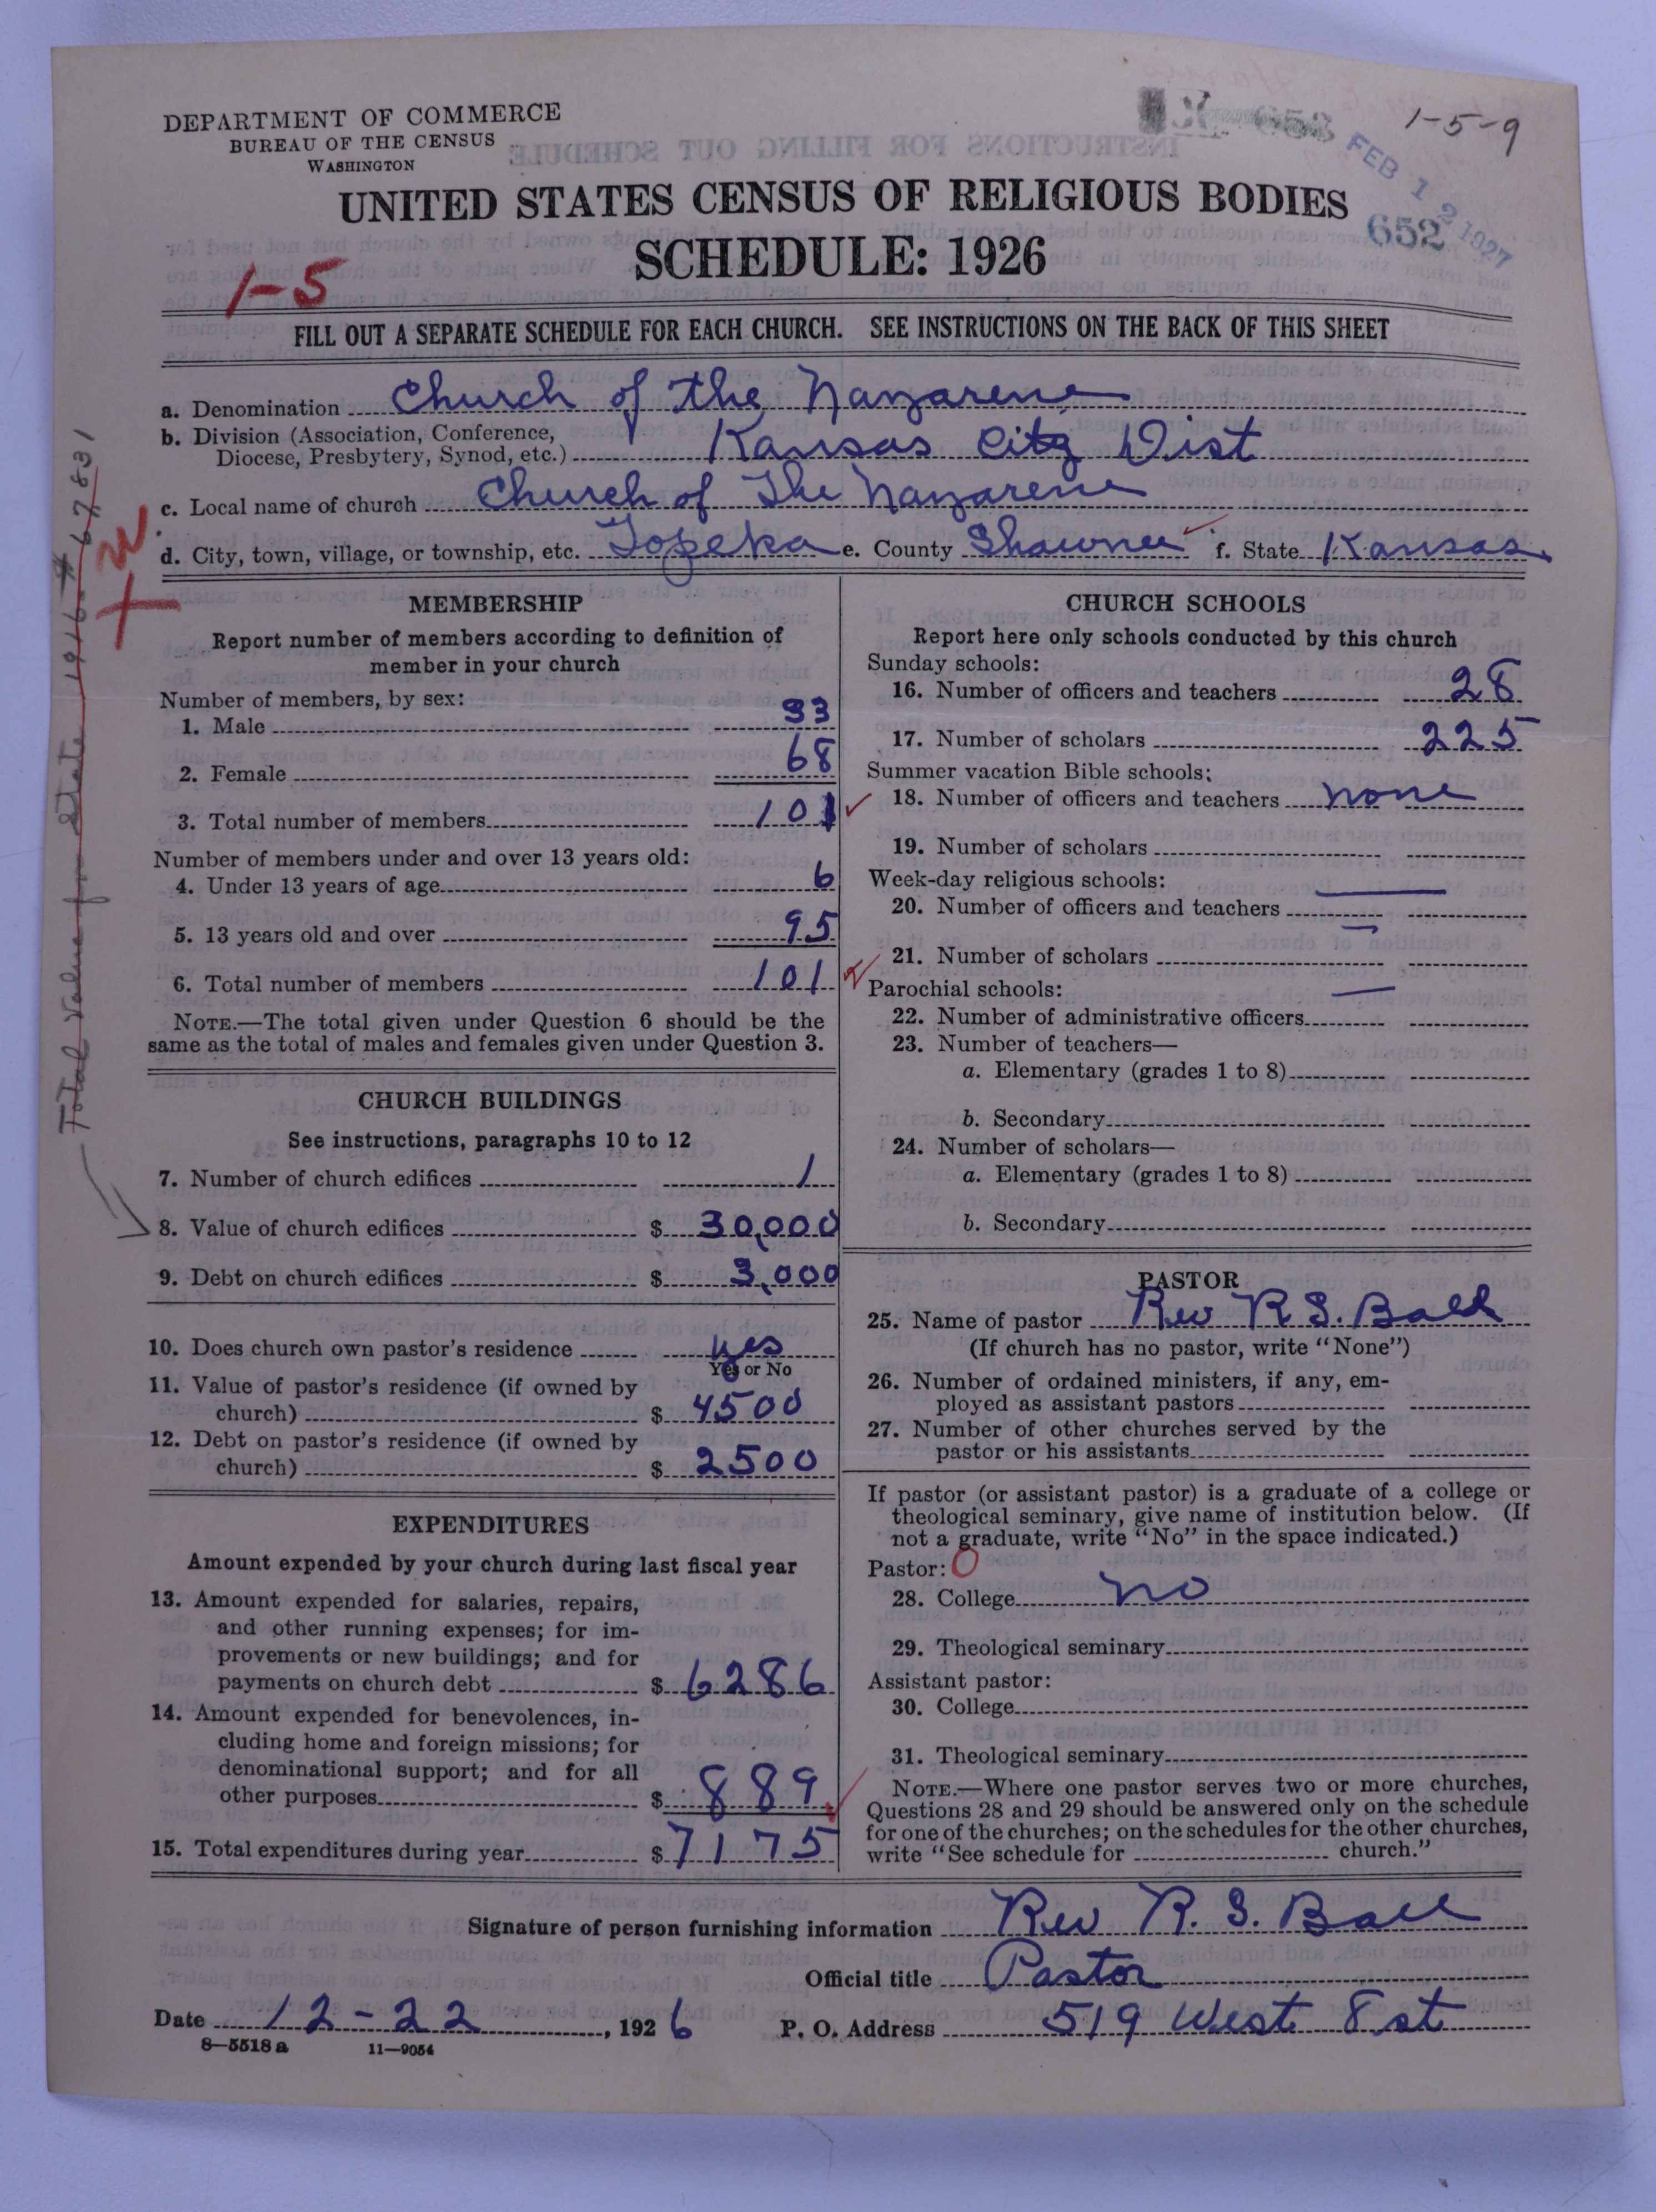 DEPARTMENT OF COMMERCE
BUREAU OF THE CENSUS
WASHINGTON
1-5-9
FEB 12 1927
652
UNITED STATES CENSUS OF RELIGIOUS BODIES
SCHEDULE: 1926
1-5
FILL OUT A SEPARATE SCHEDULE FOR EACH CHURCH. SEE INSTRUCTIONS ON THE BACK OF THIS SHEET
a. Denomination Church of the Nazarene
b. Division (Association, Conference,
Diocese, Presbytery, Synod, etc.) Kansas City Dist
c. Local name of church Church of The Nazarene
d. City, town, village, or township, etc. Topeka e. County Shawnee f. State Kansas
Total Value for State 1916 # 67831
MEMBERSHIP
Report number of members according to definition of
member in your church
Number of members, by sex:
1. Male 33
2. Female 68
3. Total number of members 101
Number of members under and over 13 years old:
4. Under 13 years of age 6
5. 13 years old and over 95
6. Total number of members 101
NOTE.—The total given under Question 6 should be the
same as the total of males and females given under Question 3.
CHURCH BUILDINGS
See instructions, paragraphs 10 to 12
7. Number of church edifices 1
8. Value of church edifices $ 30,000
9. Debt on church edifices $ 3,000
10. Does church own pastor's residence yes
Yes or No
11. Value of pastor's residence (if owned by
church) $ 4500
12. Debt on pastor's residence (if owned by
church) $ 2500
EXPENDITURES
Amount expended by your church during last fiscal year
13. Amount expended for salaries, repairs,
and other running expenses; for im-
provements or new buildings; and for
payments on church debt $ 6286
14. Amount expended for benevolences, in-
cluding home and foreign missions; for
denominational support; and for all
other purposes $ 889
15. Total expenditures during year $ 7175
CHURCH SCHOOLS
Report here only schools conducted by this church
Sunday schools:
16. Number of officers and teachers 28
17. Number of scholars 225
Summer vacation Bible schools:
18. Number of officers and teachers none
19. Number of scholars
Week-day religious schools:
20. Number of officers and teachers
21. Number of scholars
Parochial schools:
22. Number of administrative officers
23. Number of teachers—
a. Elementary (grades 1 to 8)
b. Secondary
24. Number of scholars—
a. Elementary (grades 1 to 8)
b. Secondary
PASTOR
25. Name of pastor Rev R S. Ball
(If church has no pastor, write "None")
26. Number of ordained ministers, if any, em-
ployed as assistant pastors
27. Number of other churches served by the
pastor or his assistants
If pastor (or assistant pastor) is a graduate of a college or
theological seminary, give name of institution below. (If
not a graduate, write "No" in the space indicated.)
Pastor: O
28. College no
29. Theological seminary
Assistant pastor:
30. College
31. Theological seminary
NOTE.—Where one pastor serves two or more churches,
Questions 28 and 29 should be answered only on the schedule
for one of the churches; on the schedules for the other churches,
write "See schedule for church."
Signature of person furnishing information Rev R. S. Ball
Official title Pastor
Date 12-22, 1926 P. O. Address 519 West 8 st
8—5518 a 11—9054